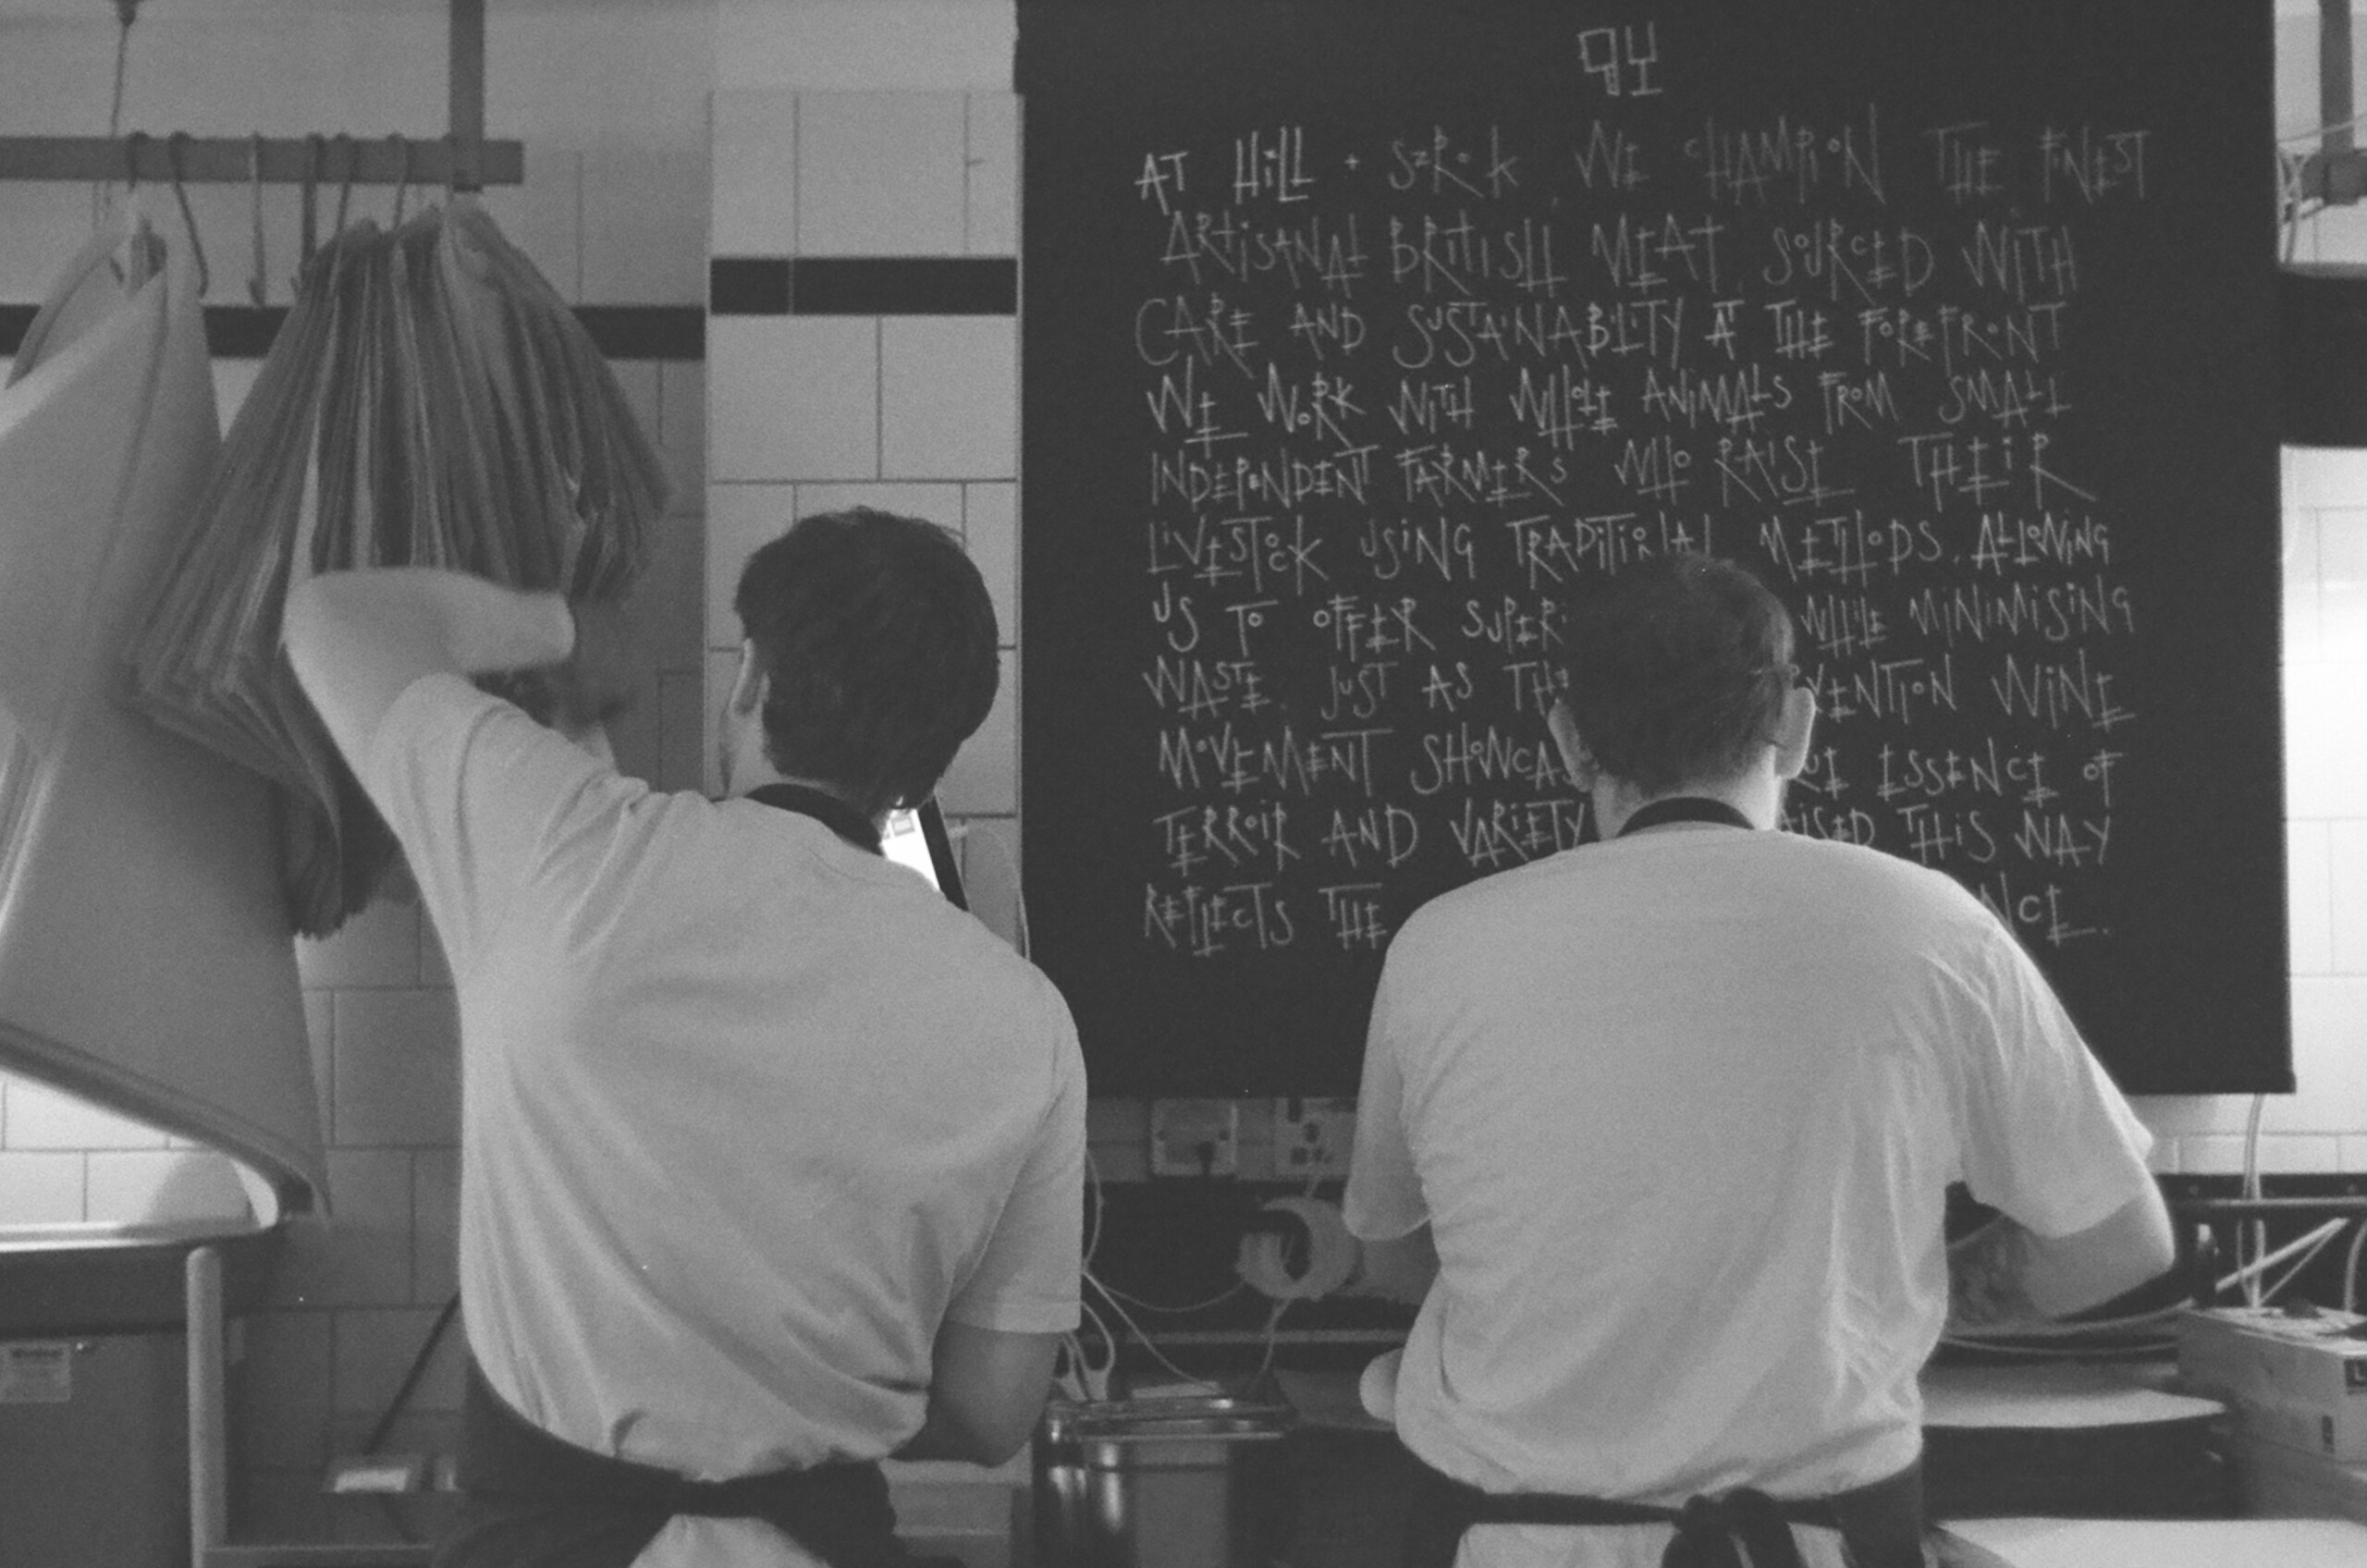 94
AT HILL + SZROK, WE CHAMPION THE FINEST
ARTISANAL BRITISH MEAT, SOURCED WITH
CARE AND SUSTAINABILITY AT THE FOREFRONT
WE WORK WITH WHOLE ANIMALS FROM SMALL
INDEPENDENT FARMERS WHO RAISE THEIR
LIVESTOCK USING TRADITIONAL METHODS, ALLOWING
US TO OFFER WHILE MINIMISING
WASTE. JUST AS WINE
MOVEMENT ESSENCE OF
TERROIR AND VARIETY THIS WAY
REFLECTS THE